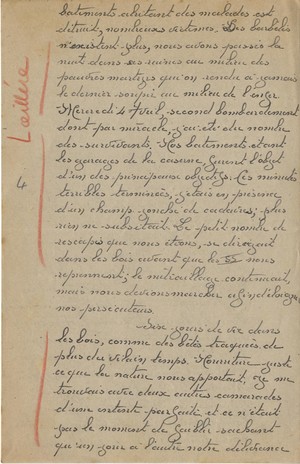 batiments abritant des malades est
détruit, nombreuses victimes. Des barbelés
n'existent plus, nous avons passés la
nuit dans ses ruines au milieu des
pauvres martyrs qui ont rendu à jamais
le dernier soupir au milieu de l'enfer
Mercredi 4 Avril, second bombardement
dont par miracle, j'ai été du nombre
des survivants. Nos batiments étant
les garages de la caserne, furent l'objet
d'un des principaux objectifs. Les minutes
terribles terminées, j'étais en présence
d'un champ jonché de cadavres, plus
rien ne subsistait. Le petit nombre de
rescapés que nous étions, se dirigeait
dans les bois avant que les SS nous
reprennent; le mitraillage continuait,
mais nous devions marcher afin d'éloigner
nos persécuteurs.
Six jours de vie dans
les bois, comme des bêtes traquées par
plus de vilain temps. Nourriture juste
ce que la nature nous apportait, je me
trouvais avec deux autres camarades
d'une entente parfaite et ce n'était
pas le moment de faiblir sachant
qu'un jour à l'autre notre délivrance
L'arrivée
4